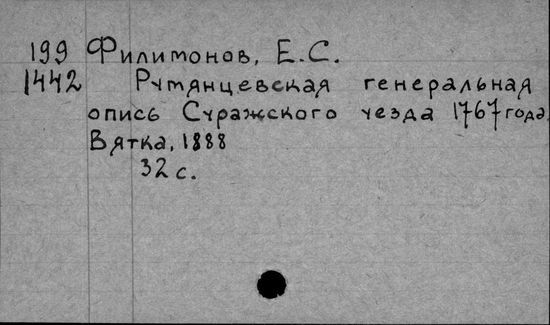 199 Филимонов, Е.С.
1442 Румянцевская генеральная
опись Суражского уезда 1767 года.
Вятка, 1888
32 с.